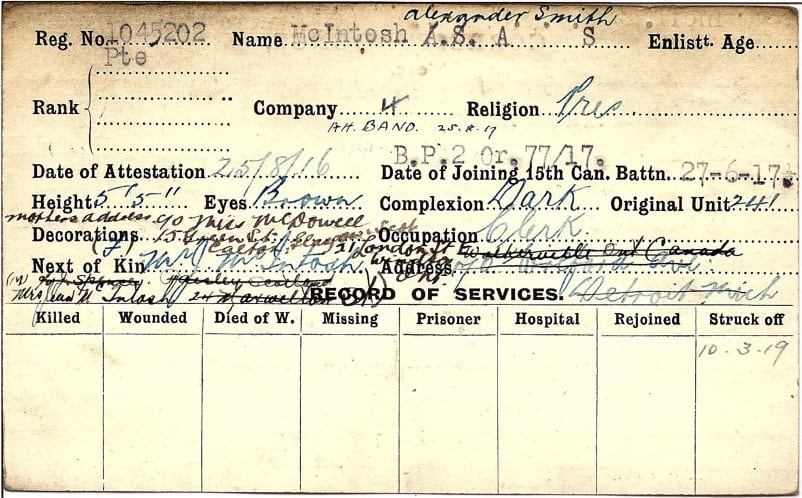 alexander Smith
Reg. No. 1045202 Name McIntosh A.S. A S Enlistt. Age
Pte
Rank Company 4 Religion Pres
H.H. BAND. 25.8.17
B.P.2 Or.77/17.
Date of Attestation 25/8/16 Date of Joining 15th Can. Battn. 27-6-17
Height 5'5" Eyes Brown Complexion Dark Original Unit 241
mothers address c/o Miss McDowell
Decorations (F) 15 Green St. Occupation Clerk
21 London St Walkerville Ont Canada
Next of Kin Mr J McIntosh Address
Mrs McIntosh 24 Maxwellton RECORD OF SERVICES. Detroit Mich
Killed Wounded Died of W. Missing Prisoner Hospital Rejoined Struck off
10-3-19